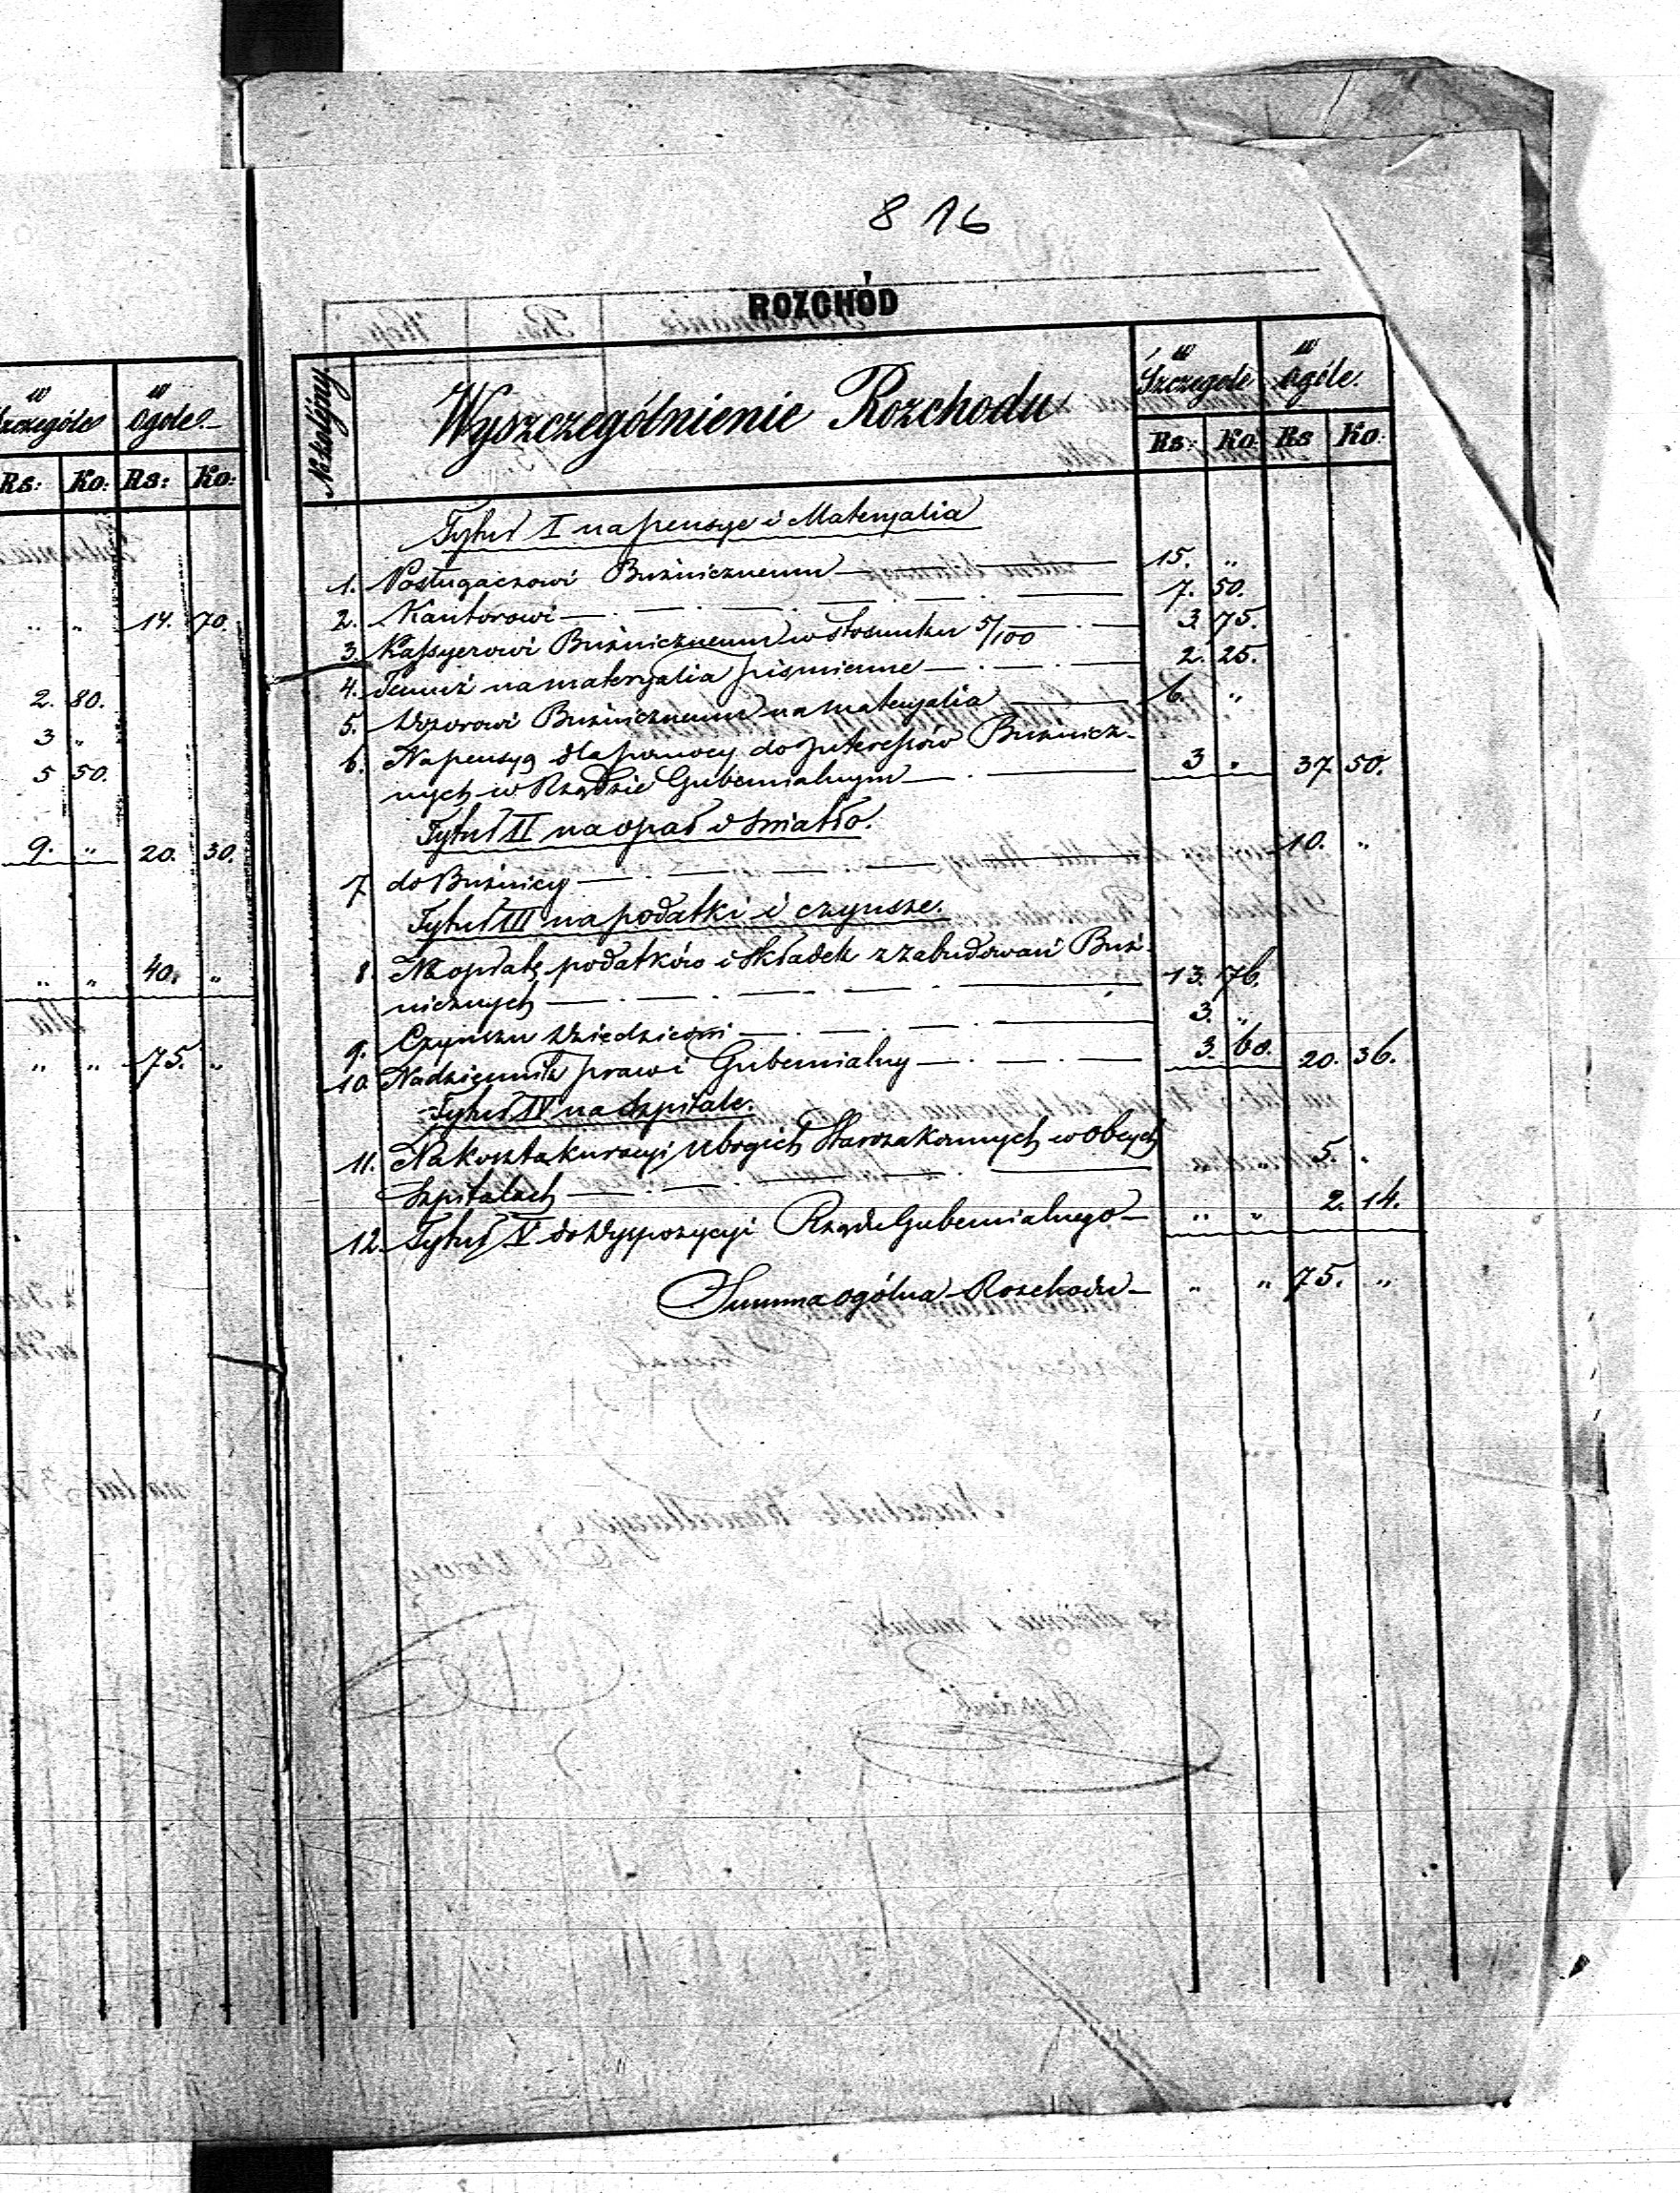 8 16
ROZCHÓD
w Szczególe w Ogóle.
Rs: Ko: Rs: Ko:
„ „ 14. 70.
2. 80.
3 „
5 50.
9. „ 20. 30.
„ „ 40. „
„ „ 75. „
No kolejny. Wyszczególnienie Rozchodu w Szczególe w Ogóle.
Rs: Ko Rs Ko:
Tytuł I na pensye i Materyalia
1. Posługaczowi Bużnicznemu 15. „
2. Kantorowi 7. 50.
3. Kassyerowi Bużnicznemu w stosunku 5/100 3. 75.
4. Temuż na materyalia piśmienne 2. 25.
5. Dozorowi Bużnicznemu na materyalia 6. „
6. Na pensyą dla pomocy do Interessów Bużnicz-
nych w Rządzie Gubernialnym 3 „ 37 50.
Tytuł II na opał i światło.
7 do Bużnicy 10. „
Tytuł III na podatki i czynsze.
8. Na opłatę podatków i składek z zabudowań Buż-
nicznych 13. 76.
9. Czynszu Dziedzicowi 3. „
10. Na dziennik praw i Gubernialny 3. 60. 20. 36.
Tytuł IV na Szpitale.
11. Na koszta kuracyi ubogich Starozakonnych w obcych
Szpitalach „ „ 5. „
12. Tytuł V do Dyspozycyi Rządu Gubernialnego „ „ 2. 14.
Summa ogólna Rozchodu „ „ 75. „